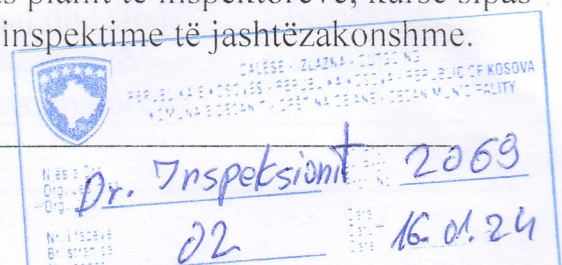 planit të inspektorëve, kurse sipas
inspektime të jashtëzakonshme.
DALËSE - IZLAZNA - OUTGOING
REPUBLIKA E KOSOVËS - REPUBLIKA KOSOVA - REPUBLIC OF KOSOVA
KOMUNA E DEÇANIT - OPŠTINA DEČANE - DECAN MUNICIPALITY
Dr. Inspeksionit 2069
Nr. i faqeve
Br. stranica
02 16.01.24